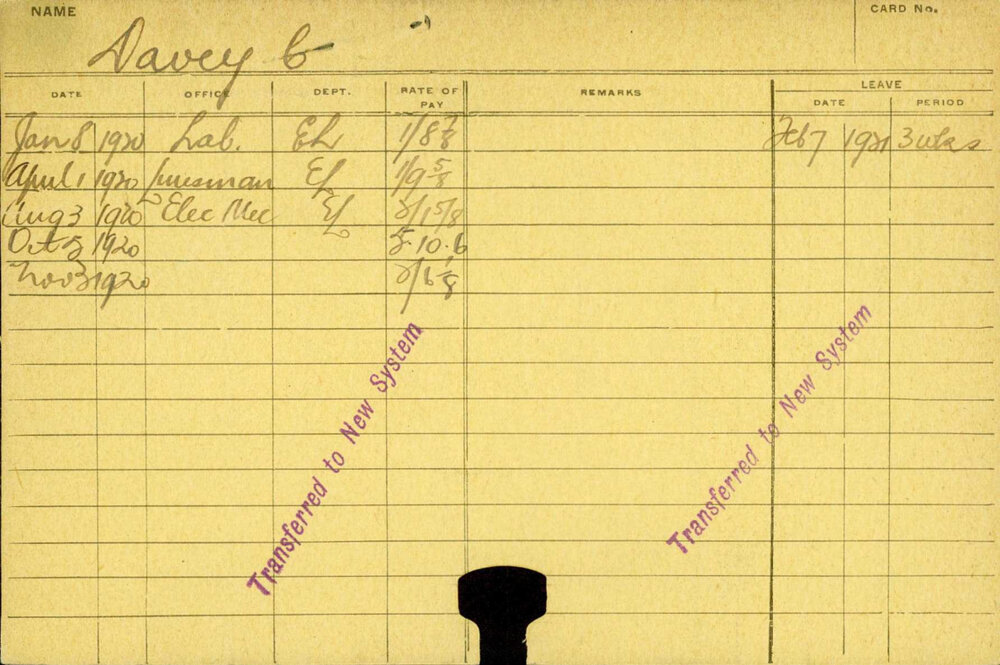 NAME
CARD No.
Davey C
LEAVE
DATE OFFICE DEPT. RATE OF PAY REMARKS DATE PERIOD
Jan 8 1920 Lab. EL 1/8 7/8 Feb 7 1921 3 wks
April 1 1920 Linesman EL 1/9 5/8
Aug 3 1920 Elec Mec EL 2/1 5/8
Oct 5 1920 5.10.6
Nov 3 1920 2/6 1/8
Transferred to New System
Transferred to New System